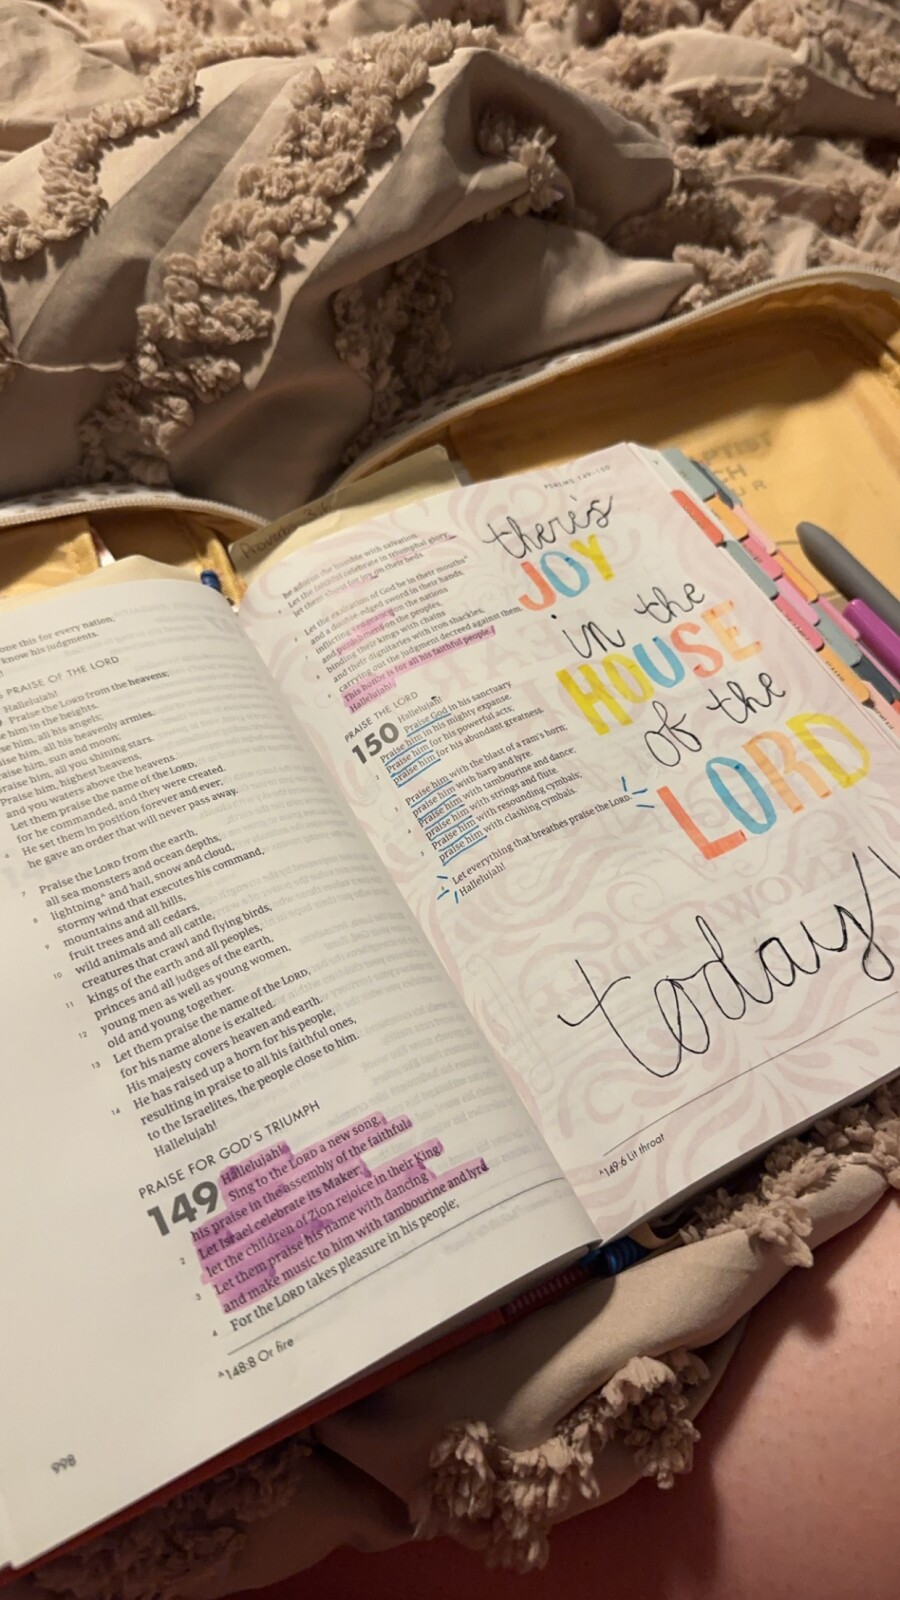 one this for every nation;
know his judgments.
PRAISE OF THE LORD
Hallelujah!
Praise the LORD from the heavens;
him in the heights.
him, all his angels;
him, all his heavenly armies.
him, sun and moon;
praise him, all you shining stars.
Praise him, highest heavens,
and you waters above the heavens.
Let them praise the name of the LORD,
for he commanded, and they were created.
6 He set them in position forever and ever;
he gave an order that will never pass away.
7 Praise the LORD from the earth,
all sea monsters and ocean depths,
8 lightning^ and hail, snow and cloud,
stormy wind that executes his command,
9 mountains and all hills,
fruit trees and all cedars,
10 wild animals and all cattle,
creatures that crawl and flying birds,
11 kings of the earth and all peoples,
princes and all judges of the earth,
12 young men as well as young women,
old and young together.
13 Let them praise the name of the LORD,
for his name alone is exalted.
His majesty covers heaven and earth.
14 He has raised up a horn for his people,
resulting in praise to all his faithful ones,
to the Israelites, the people close to him.
Hallelujah!
PRAISE FOR GOD'S TRIUMPH
149 Hallelujah!
Sing to the LORD a new song,
his praise in the assembly of the faithful.
2 Let Israel celebrate its Maker;
let the children of Zion rejoice in their King.
3 Let them praise his name with dancing
and make music to him with tambourine and lyre.
4 For the LORD takes pleasure in his people;
^148:8 Or fire
998
Proverbs
PSALMS 149–150
he adorns the humble with salvation.
5 Let the faithful celebrate in triumphal glory;
let them shout for joy on their beds.
6 Let the exaltation of God be in their mouths^
and a double-edged sword in their hands,
7 inflicting vengeance on the nations
and punishment on the peoples,
8 binding their kings with chains
and their dignitaries with iron shackles,
9 carrying out the judgment decreed against them.
This honor is for all his faithful people.
Hallelujah!
PRAISE THE LORD
150 Hallelujah!
Praise God in his sanctuary.
Praise him in his mighty expanse.
2 Praise him for his powerful acts;
praise him for his abundant greatness.
3 Praise him with the blast of a ram's horn;
praise him with harp and lyre.
4 Praise him with tambourine and dance;
praise him with strings and flute.
5 Praise him with resounding cymbals;
praise him with clashing cymbals.
6 Let everything that breathes praise the LORD.
Hallelujah!
there's
JOY
in the
HOUSE
of the
LORD
today!
^149:6 Lit throat